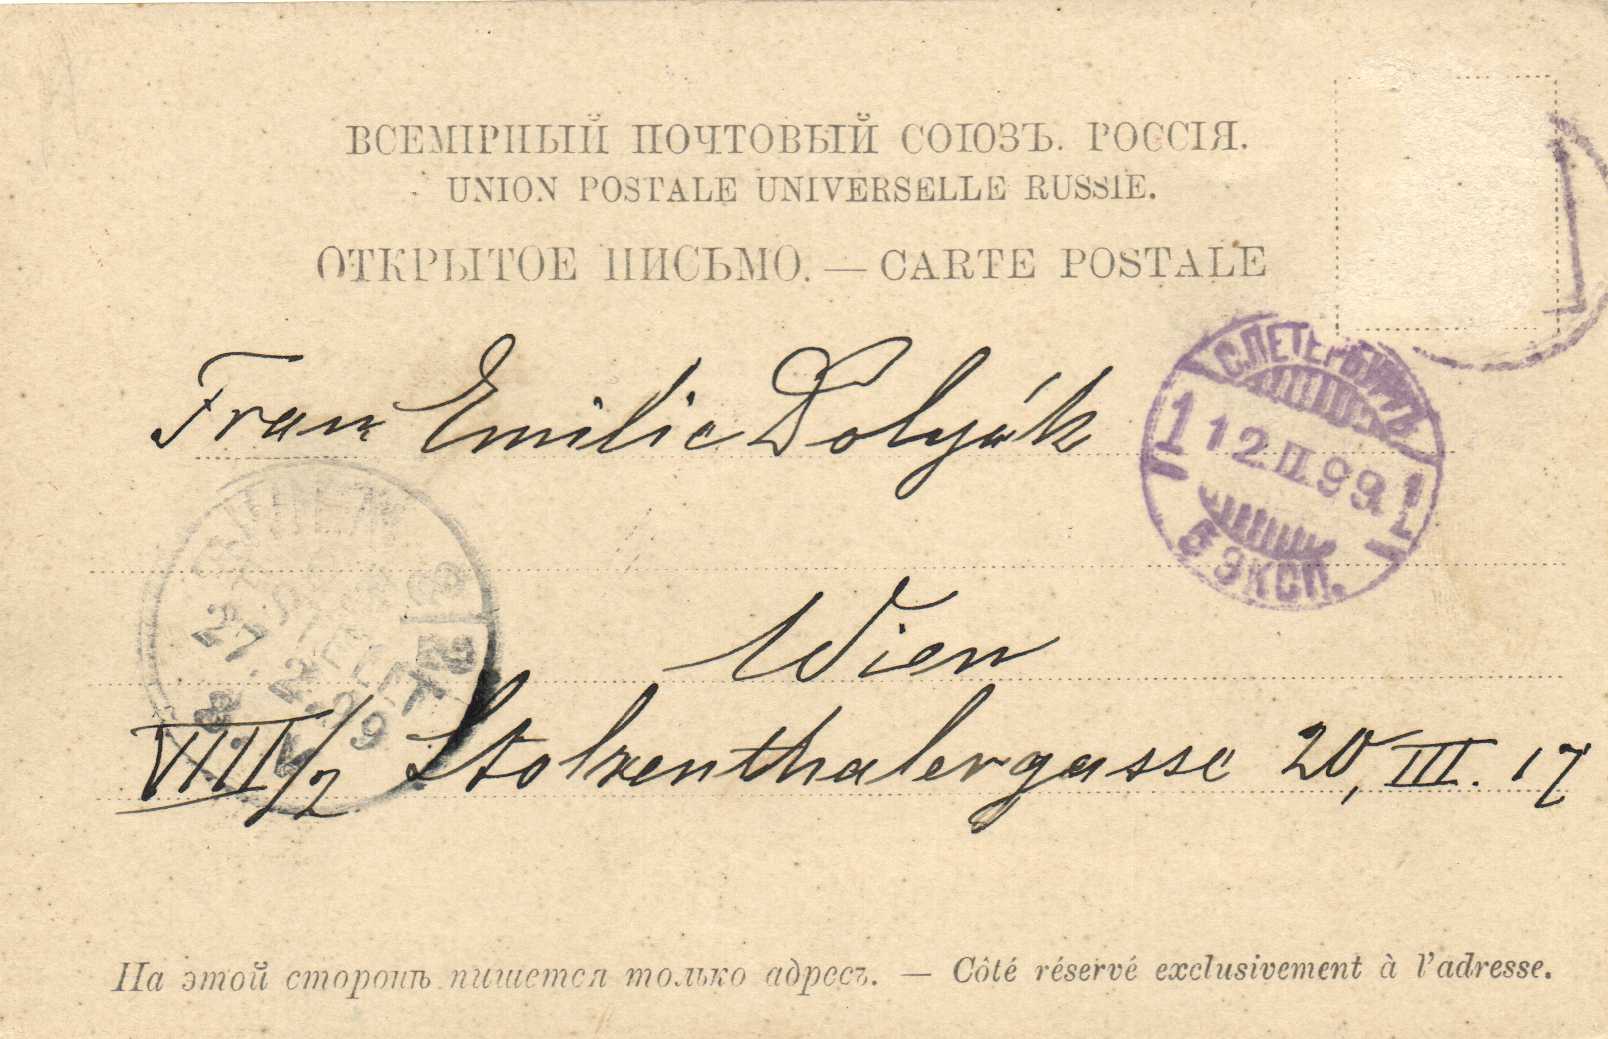 ВСЕМІРНЫЙ ПОЧТОВЫЙ СОЮЗЪ. РОССІЯ.
UNION POSTALE UNIVERSELLE RUSSIE.
ОТКРЫТОЕ ПИСЬМО. — CARTE POSTALE
С.ПЕТЕРБУРГЪ
1 12 II 99 1
5 ЭКСП.
Frau Emilie Dolyák
Wien
27. 2. 99
VIII/2 Stolzenthalergasse 20, III. 17
На этой сторонѣ пишется только адресъ. — Côté réservé exclusivement à l'adresse.